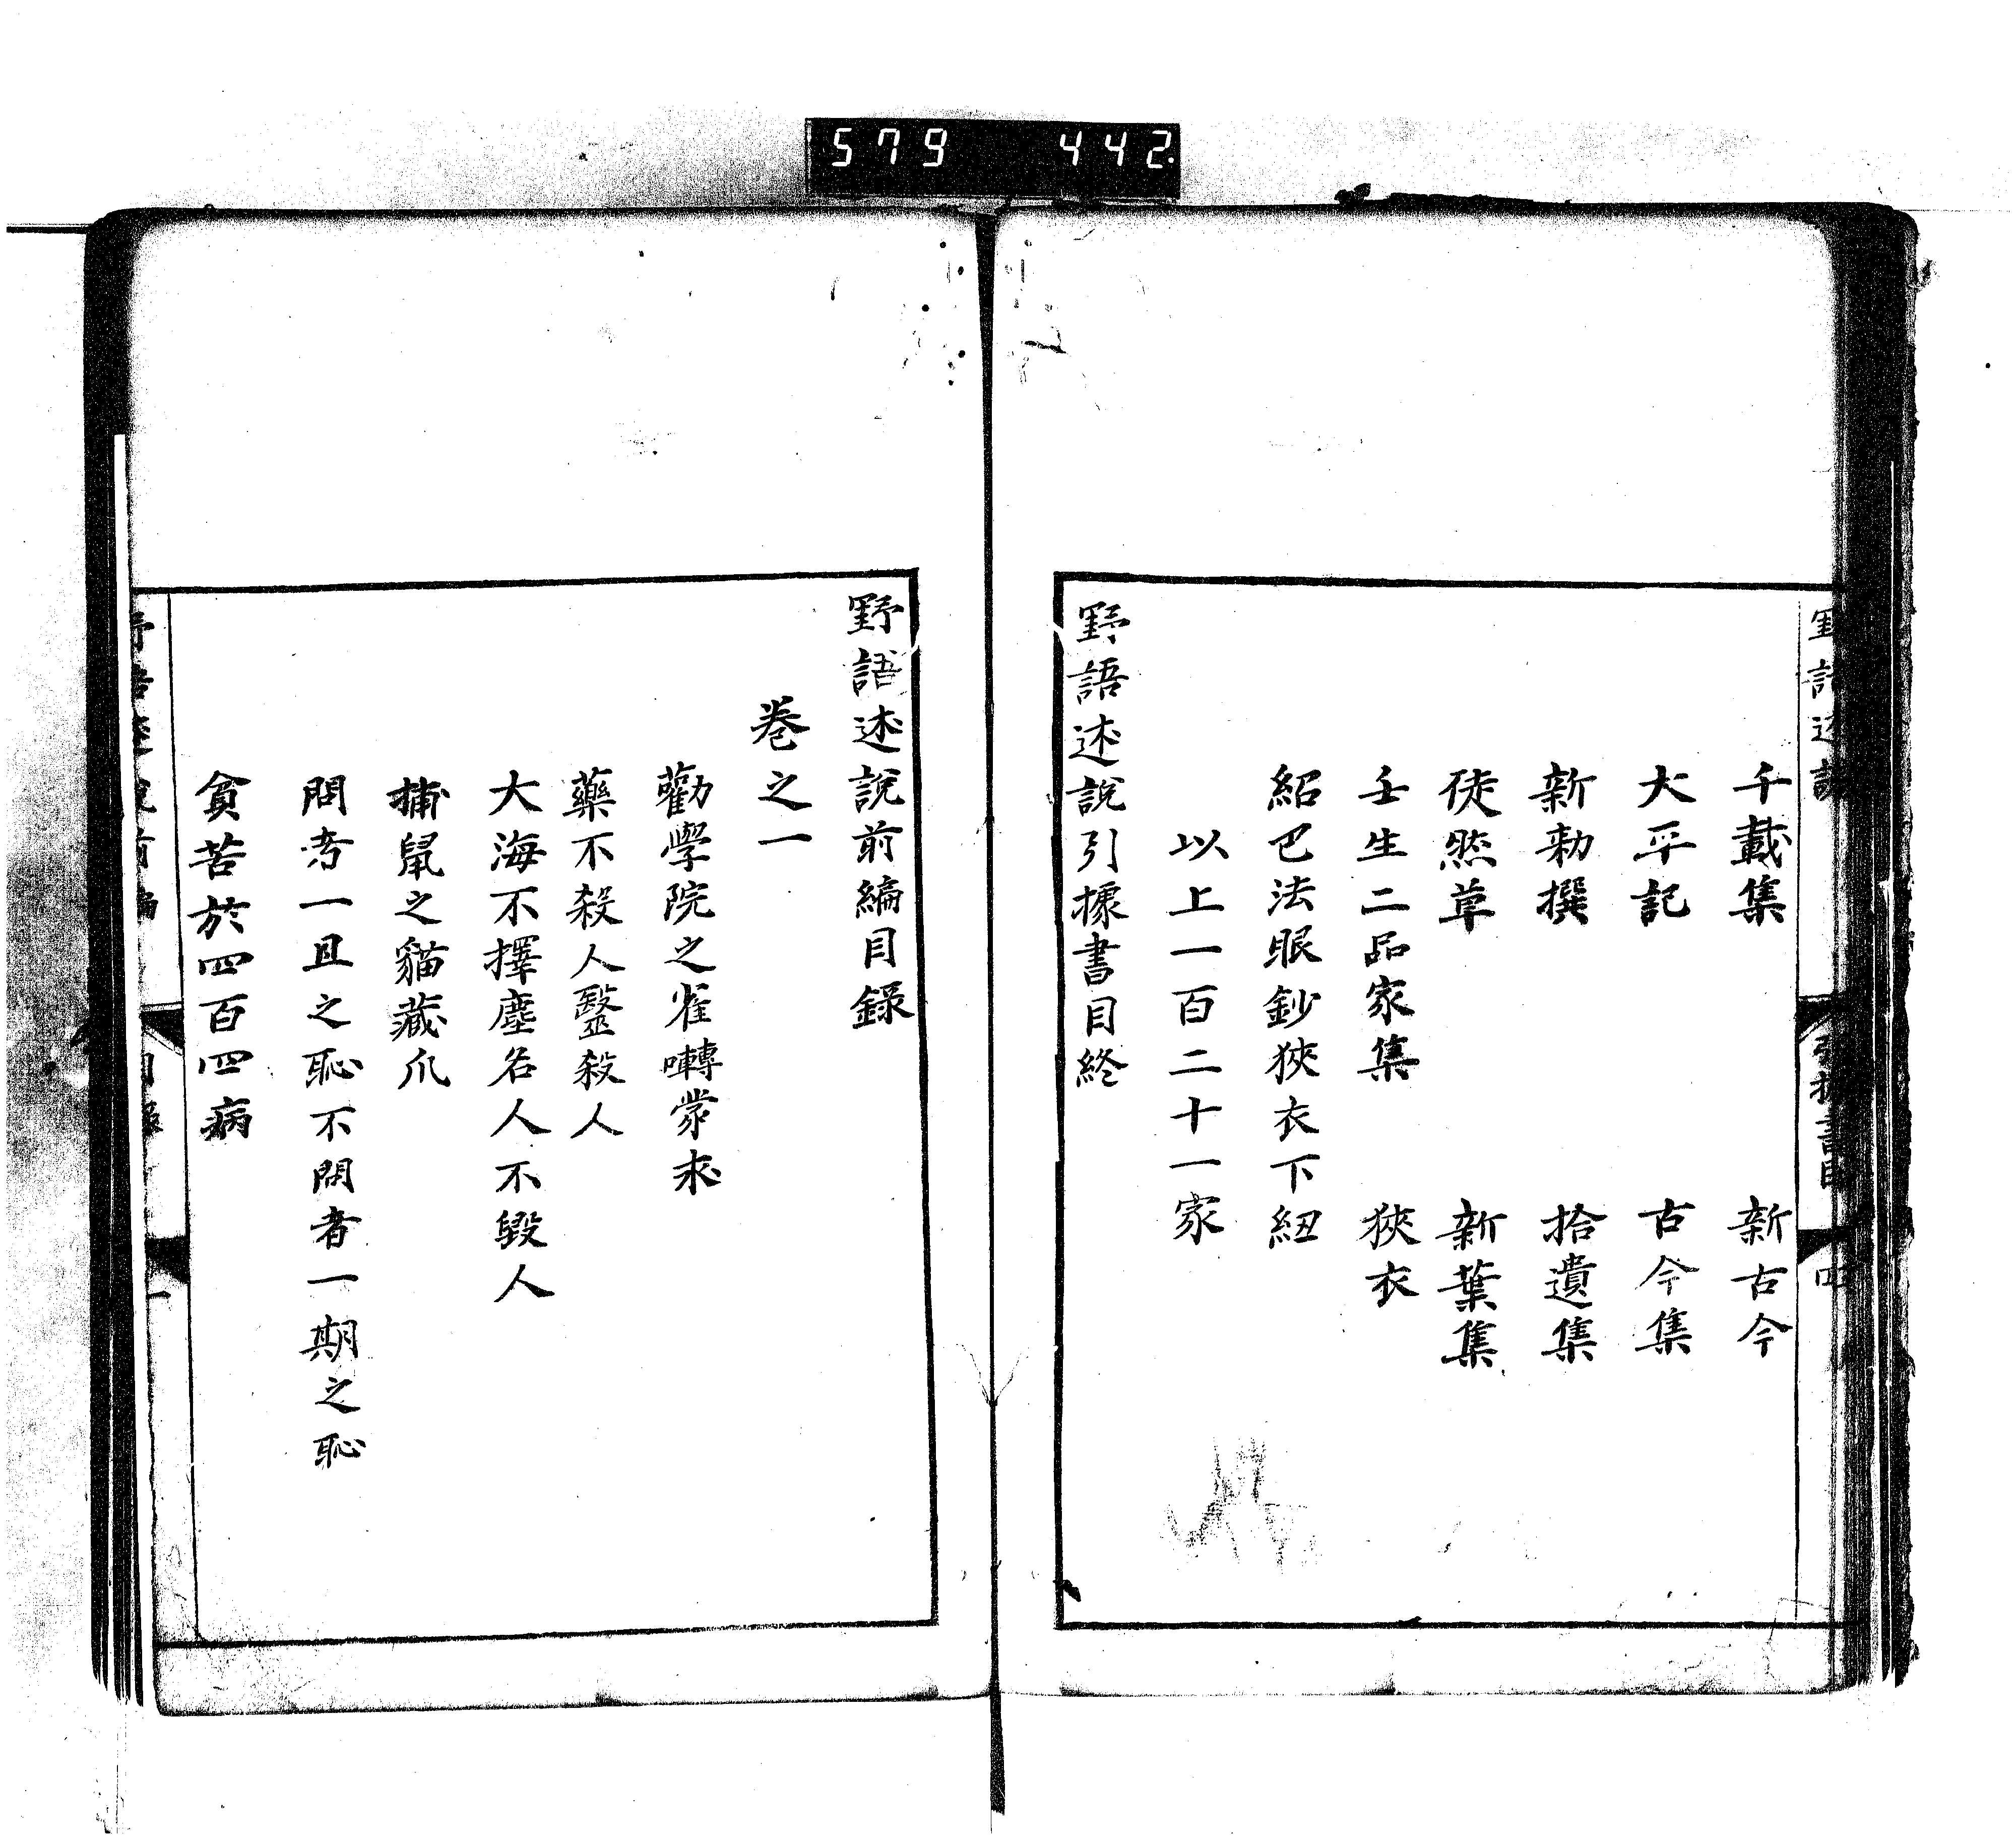 579 442
千載集 新古今
大平記 古今集
新勅撰 拾遺集
徒然草 新葉集
壬生二品家集 狹衣
紹巴法眼鈔狹衣下紐
以上一百二十一家
野語述說引據書目終
野語述說前編目錄
卷之一
勸學院之雀囀蒙求
藥不殺人毉殺人
大海不擇塵名人不毀人
捕鼠之貓藏爪
問者一旦之恥不問者一期之恥
貧苦於四百四病